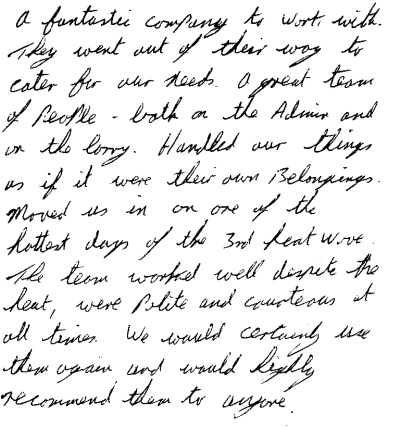 A fantastic company to work with.
They went out of their way to
cater for our needs. A great team
of People - both on the Admin and
on the lorry. Handled our things
as if it were their own Belongings.
Moved us in on one of the
hottest days of the 3rd heat wave.
The team worked well despite the
heat, were Polite and courteous at
all times. We would certainly use
them again and would highly
recommend them to anyone.